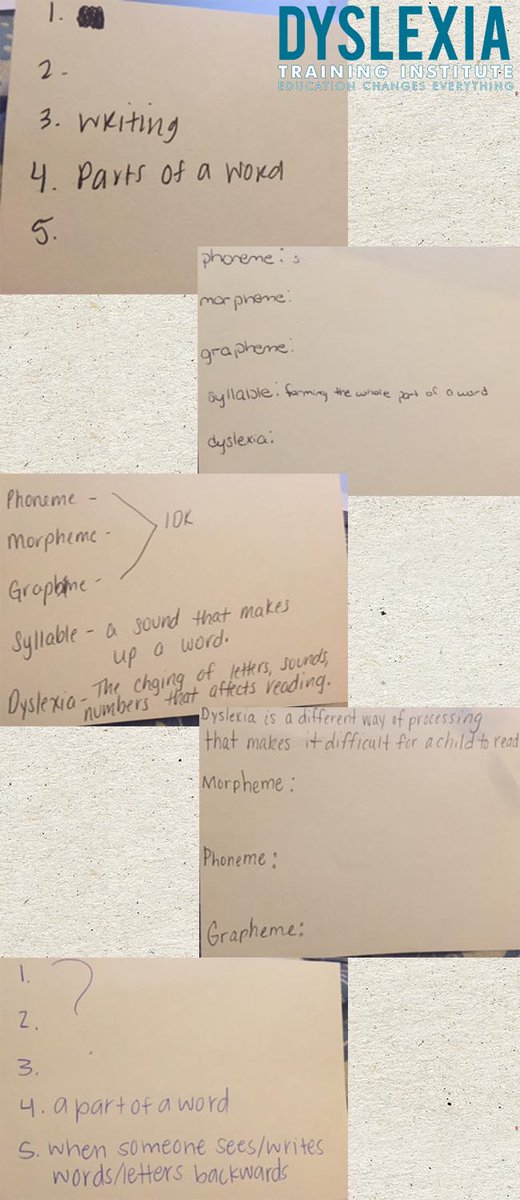 DYSLEXIA
TRAINING INSTITUTE
EDUCATION CHANGES EVERYTHING
1.
2.
3. writing
4. Parts of a word
5.
phoneme: s
morpheme:
grapheme:
syllable: forming the whole part of a word
dyslexia:
Phoneme -
IDK
Morpheme -
Grapheme -
Syllable - a sound that makes
up a word.
Dyslexia - The chging of letters, sounds,
numbers that affects reading.
Dyslexia is a different way of processing
that makes it difficult for a child to read
Morpheme:
Phoneme:
Grapheme:
1. ?
2.
3.
4. a part of a word
5. when someone sees/writes
words/letters backwards